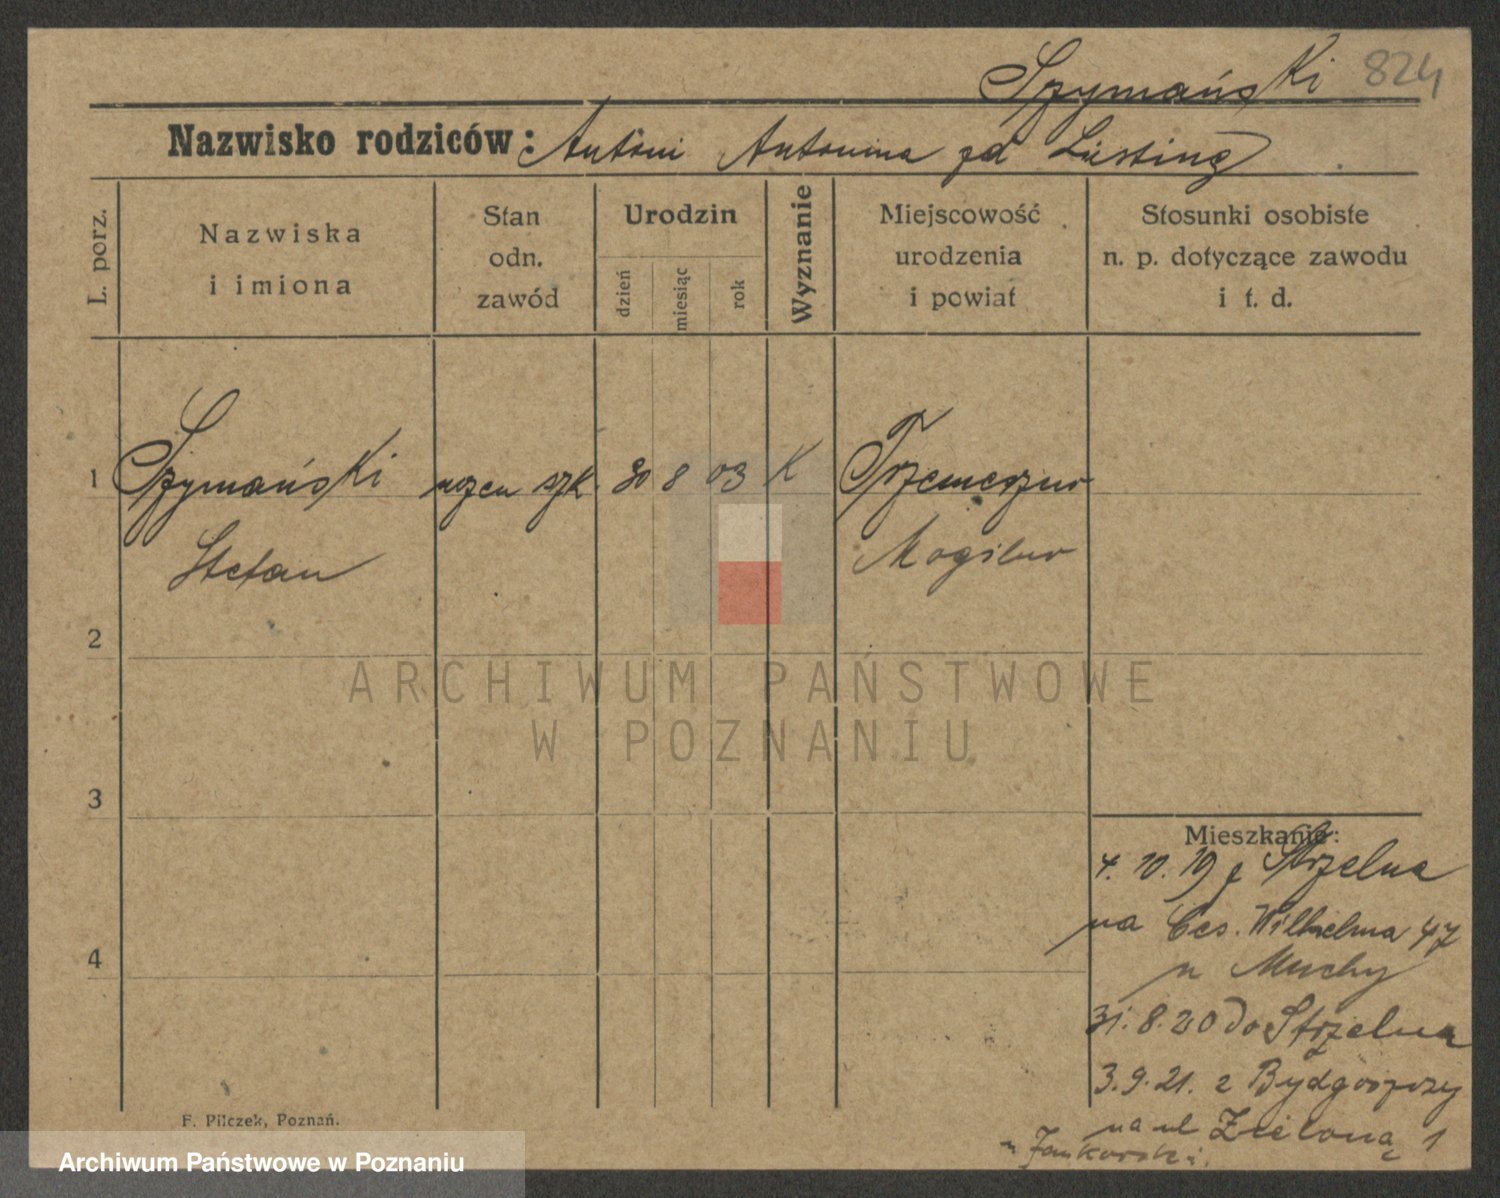 Szymański 824
Nazwisko rodziców: Antoni Antonina zd
L. porz.
Nazwiska
i imiona
Stan
odn.
zawód
Urodzin
dzień
miesiąc
rok
Wyznanie
Miejscowość
urodzenia
i powiat
Stosunki osobiste
n. p. dotyczące zawodu
i t. d.
1 Szymański uczeń szk. 30 8 03 K Trzemeszno
Stefan Mogilno
2
3
4
Mieszkanie:
4. 10. 19 z Strzelna
na Ces. Wilhelma 47
u Muchy
31. 8. 20 do Strzelna
3. 9. 21. z Bydgoszczy
na ul Zieloną 1
u Jankowski.
F. Pilczek, Poznań.
ARCHIWUM PAŃSTWOWE
W POZNANIU
Archiwum Państwowe w Poznaniu